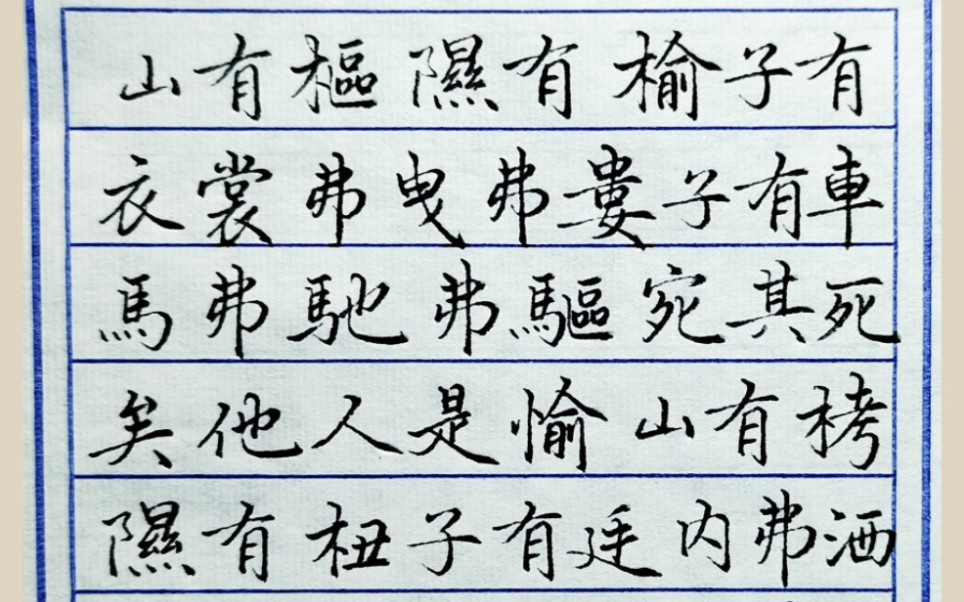 山有樞隰有榆子有
衣裳弗曳弗婁子有車
馬弗馳弗驅宛其死
矣他人是愉山有栲
隰有杻子有廷内弗洒